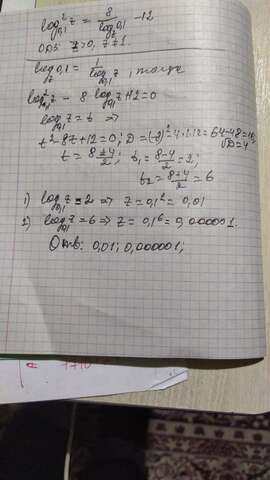 log²₀,₁ z = 8/log_z 0,1 - 12
ОДЗ: z>0, z≠1.
log_z 0,1 = 1/log₀,₁ z, тогда
log²₀,₁ z - 8 log₀,₁ z + 12 = 0
log₀,₁ z = t ⇒
t² - 8t + 12 = 0; D = (-8)² - 4·1·12 = 64 - 48 = 16; √D = 4
t = (8±4)/2; t₁ = (8-4)/2 = 2;
t₂ = (8+4)/2 = 6
1) log₀,₁ z = 2 ⇒ z = 0,1² = 0,01
2) log₀,₁ z = 6 ⇒ z = 0,1⁶ = 0,000001.
Отв: 0,01; 0,000001;